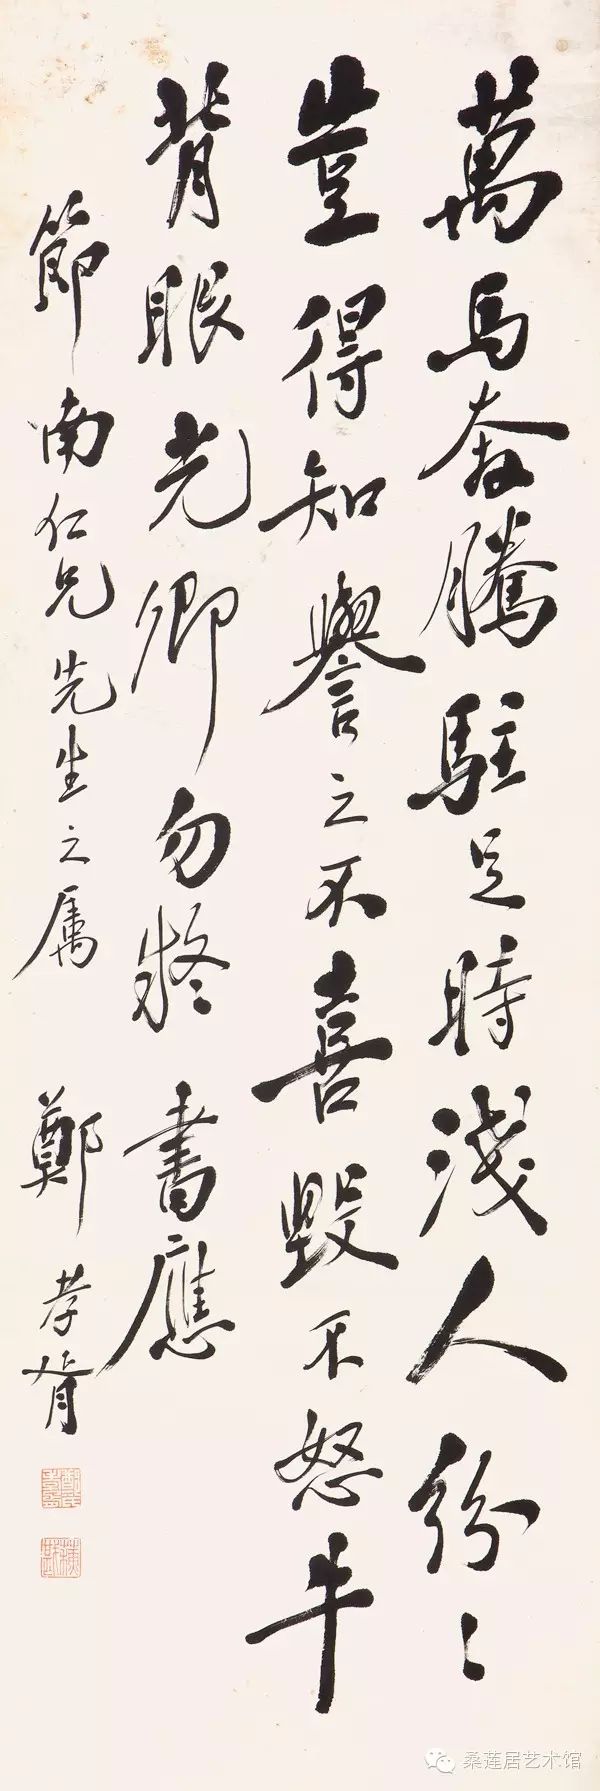 萬馬奔騰駐足時淺人紛〻
豈得知譽之不喜毀不怒牛
背眼光卿勿疑 書應
節南仁兄先生之属 鄭孝胥
桑莲居艺术馆